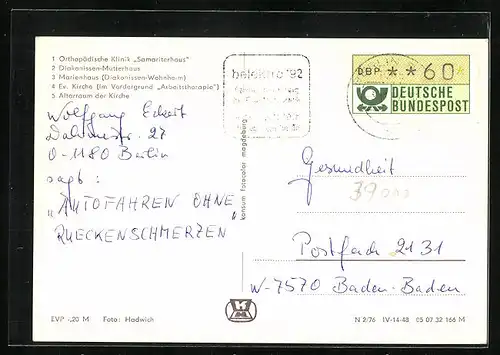 1 Orthopädische Klinik „Samariterhaus"
2 Diakonissen-Mutterhaus
3 Marienhaus (Diakonissen-Wohnheim)
4 Ev. Kirche (im Vordergrund „Arbeitstherapie")
5 Altarraum der Kirche
Wolfgang Eckert
27
O-1180 Berlin
sagt:
„AUTOFAHREN OHNE
RUECKENSCHMERZEN"
EVP -,20 M Foto: Hadwich
konsum fotocolor magdeburg
belektro '92
DBP * * 60 *
DEUTSCHE
BUNDESPOST
Gesundheit
39000
Postfach 2131
W-7570 Baden-Baden
N 2/76 IV-14-48 05 07 32 166 M